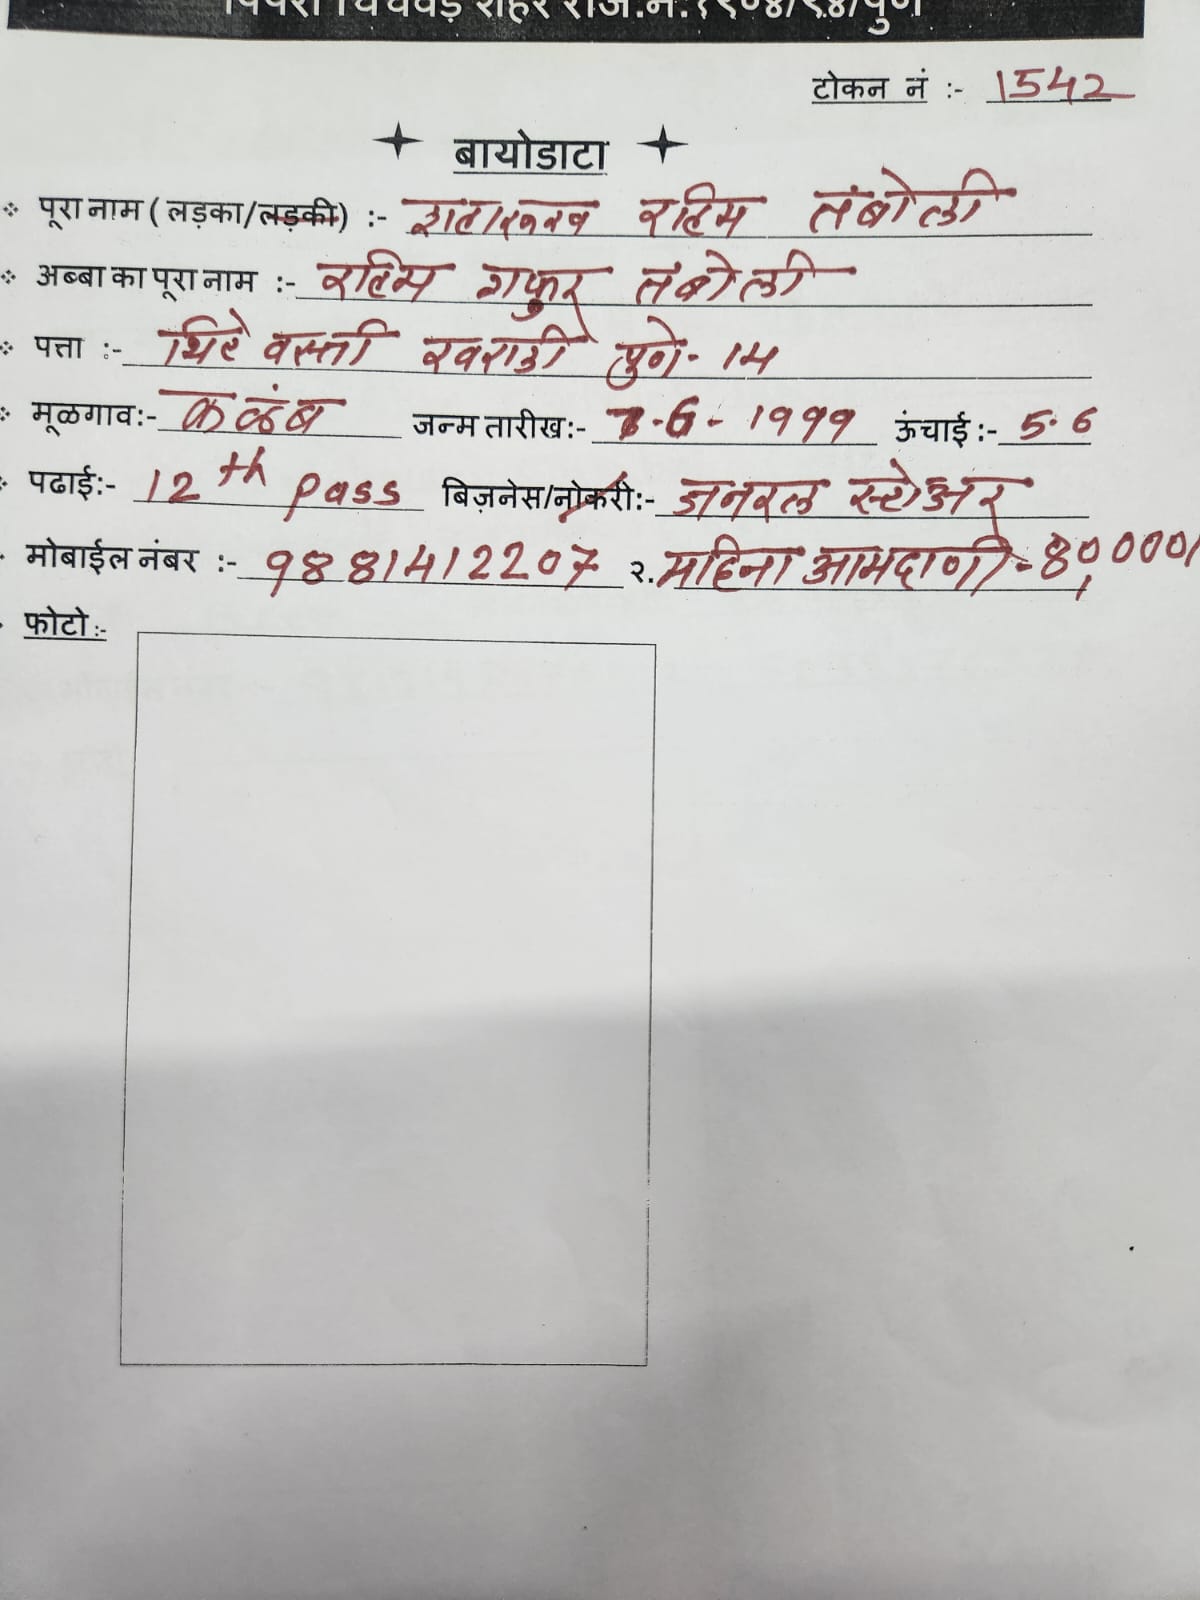 पिंपरी चिंचवड शहर रजि.नं.१९०४/९४/पुणे
टोकन नं :- 1542
बायोडाटा
पूरा नाम ( लड़का/लड़की) :- रहिम तंबोली
अब्बा का पूरा नाम :- रहिम गफुर तंबोली
पत्ता :- थिटे वस्ती खराडी पुणे- 14
मूळगाव:- कळंब जन्म तारीख:- 7-6-1999 ऊंचाई :- 5.6
पढाई:- 12th pass बिज़नेस/नोकरी:- जनरल स्टोअर
मोबाईल नंबर :- 9881412207 २. महिना आमदाणी-80,000/
फोटो:-